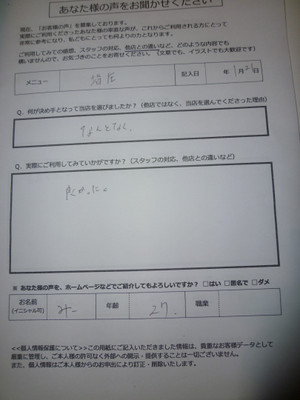 あなた様の声をお聞かせください
現在、「お客様の声」を募集しております。
実際にご利用くださったあなた様の率直な声が、これからご利用される方にとって
非常に参考になり、私どもにとっても何よりの力となります。
ご利用してみての感想、スタッフの対応、他店との違いなど、どのような内容でも
構いませんので、お気づきのことをお寄せください。(文章でも、イラストでも大歓迎です)
メニュー
記入日 年 1月21日
Q、何が決め手となって当店を選びましたか?(他店ではなく、当店を選んでくださった理由)
なんとなく
Q、実際にご利用してみていかがですか?(スタッフの対応、他店との違いなど)
良かった。
※ あなた様の声を、ホームページなどでご紹介してもよろしいですか? □はい □匿名で □ダメ
お名前 みー 年齢 27. 職業
(イニシャル可)
<<個人情報保護について>>この用紙にご記入いただきました情報は、貴重なお客様データとして
厳重に管理し、ご本人様の許可なく外部への開示・提供することは一切ございません。
また、個人情報はご本人様からのお申出により訂正・削除いたします。